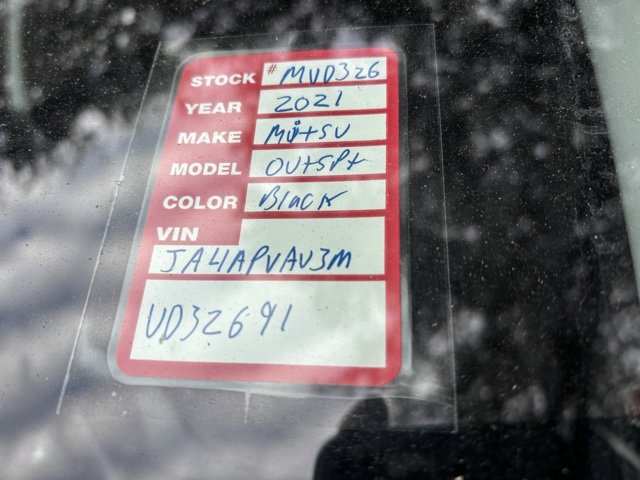 STOCK # MUD326
YEAR 2021
MAKE Mitsu
MODEL OUtSPt
COLOR Black
VIN
JA4APVAU3M
UD32691